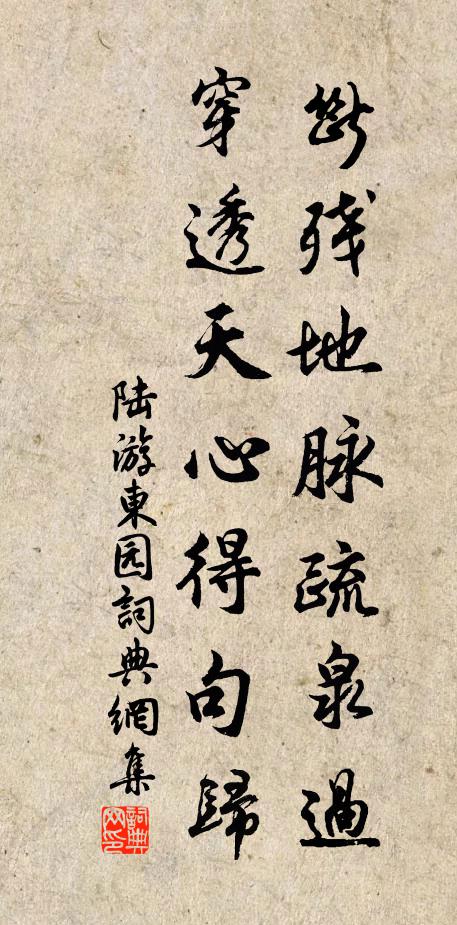 斷残地脉疏泉過
穿透天心得句歸
陆游東园詞典網集
詞典网印